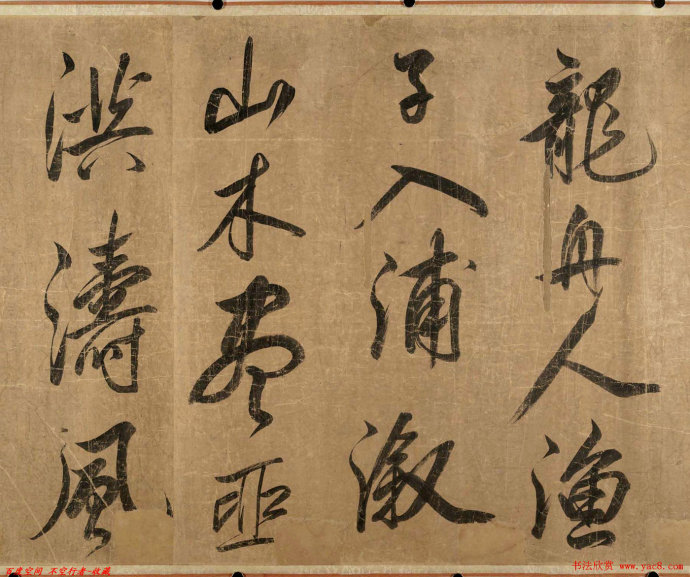 龍舟人漁
子入浦溆
山木盡亞
洪濤風
百度空间 不空行者-收藏
书法欣赏 www.yac8.com